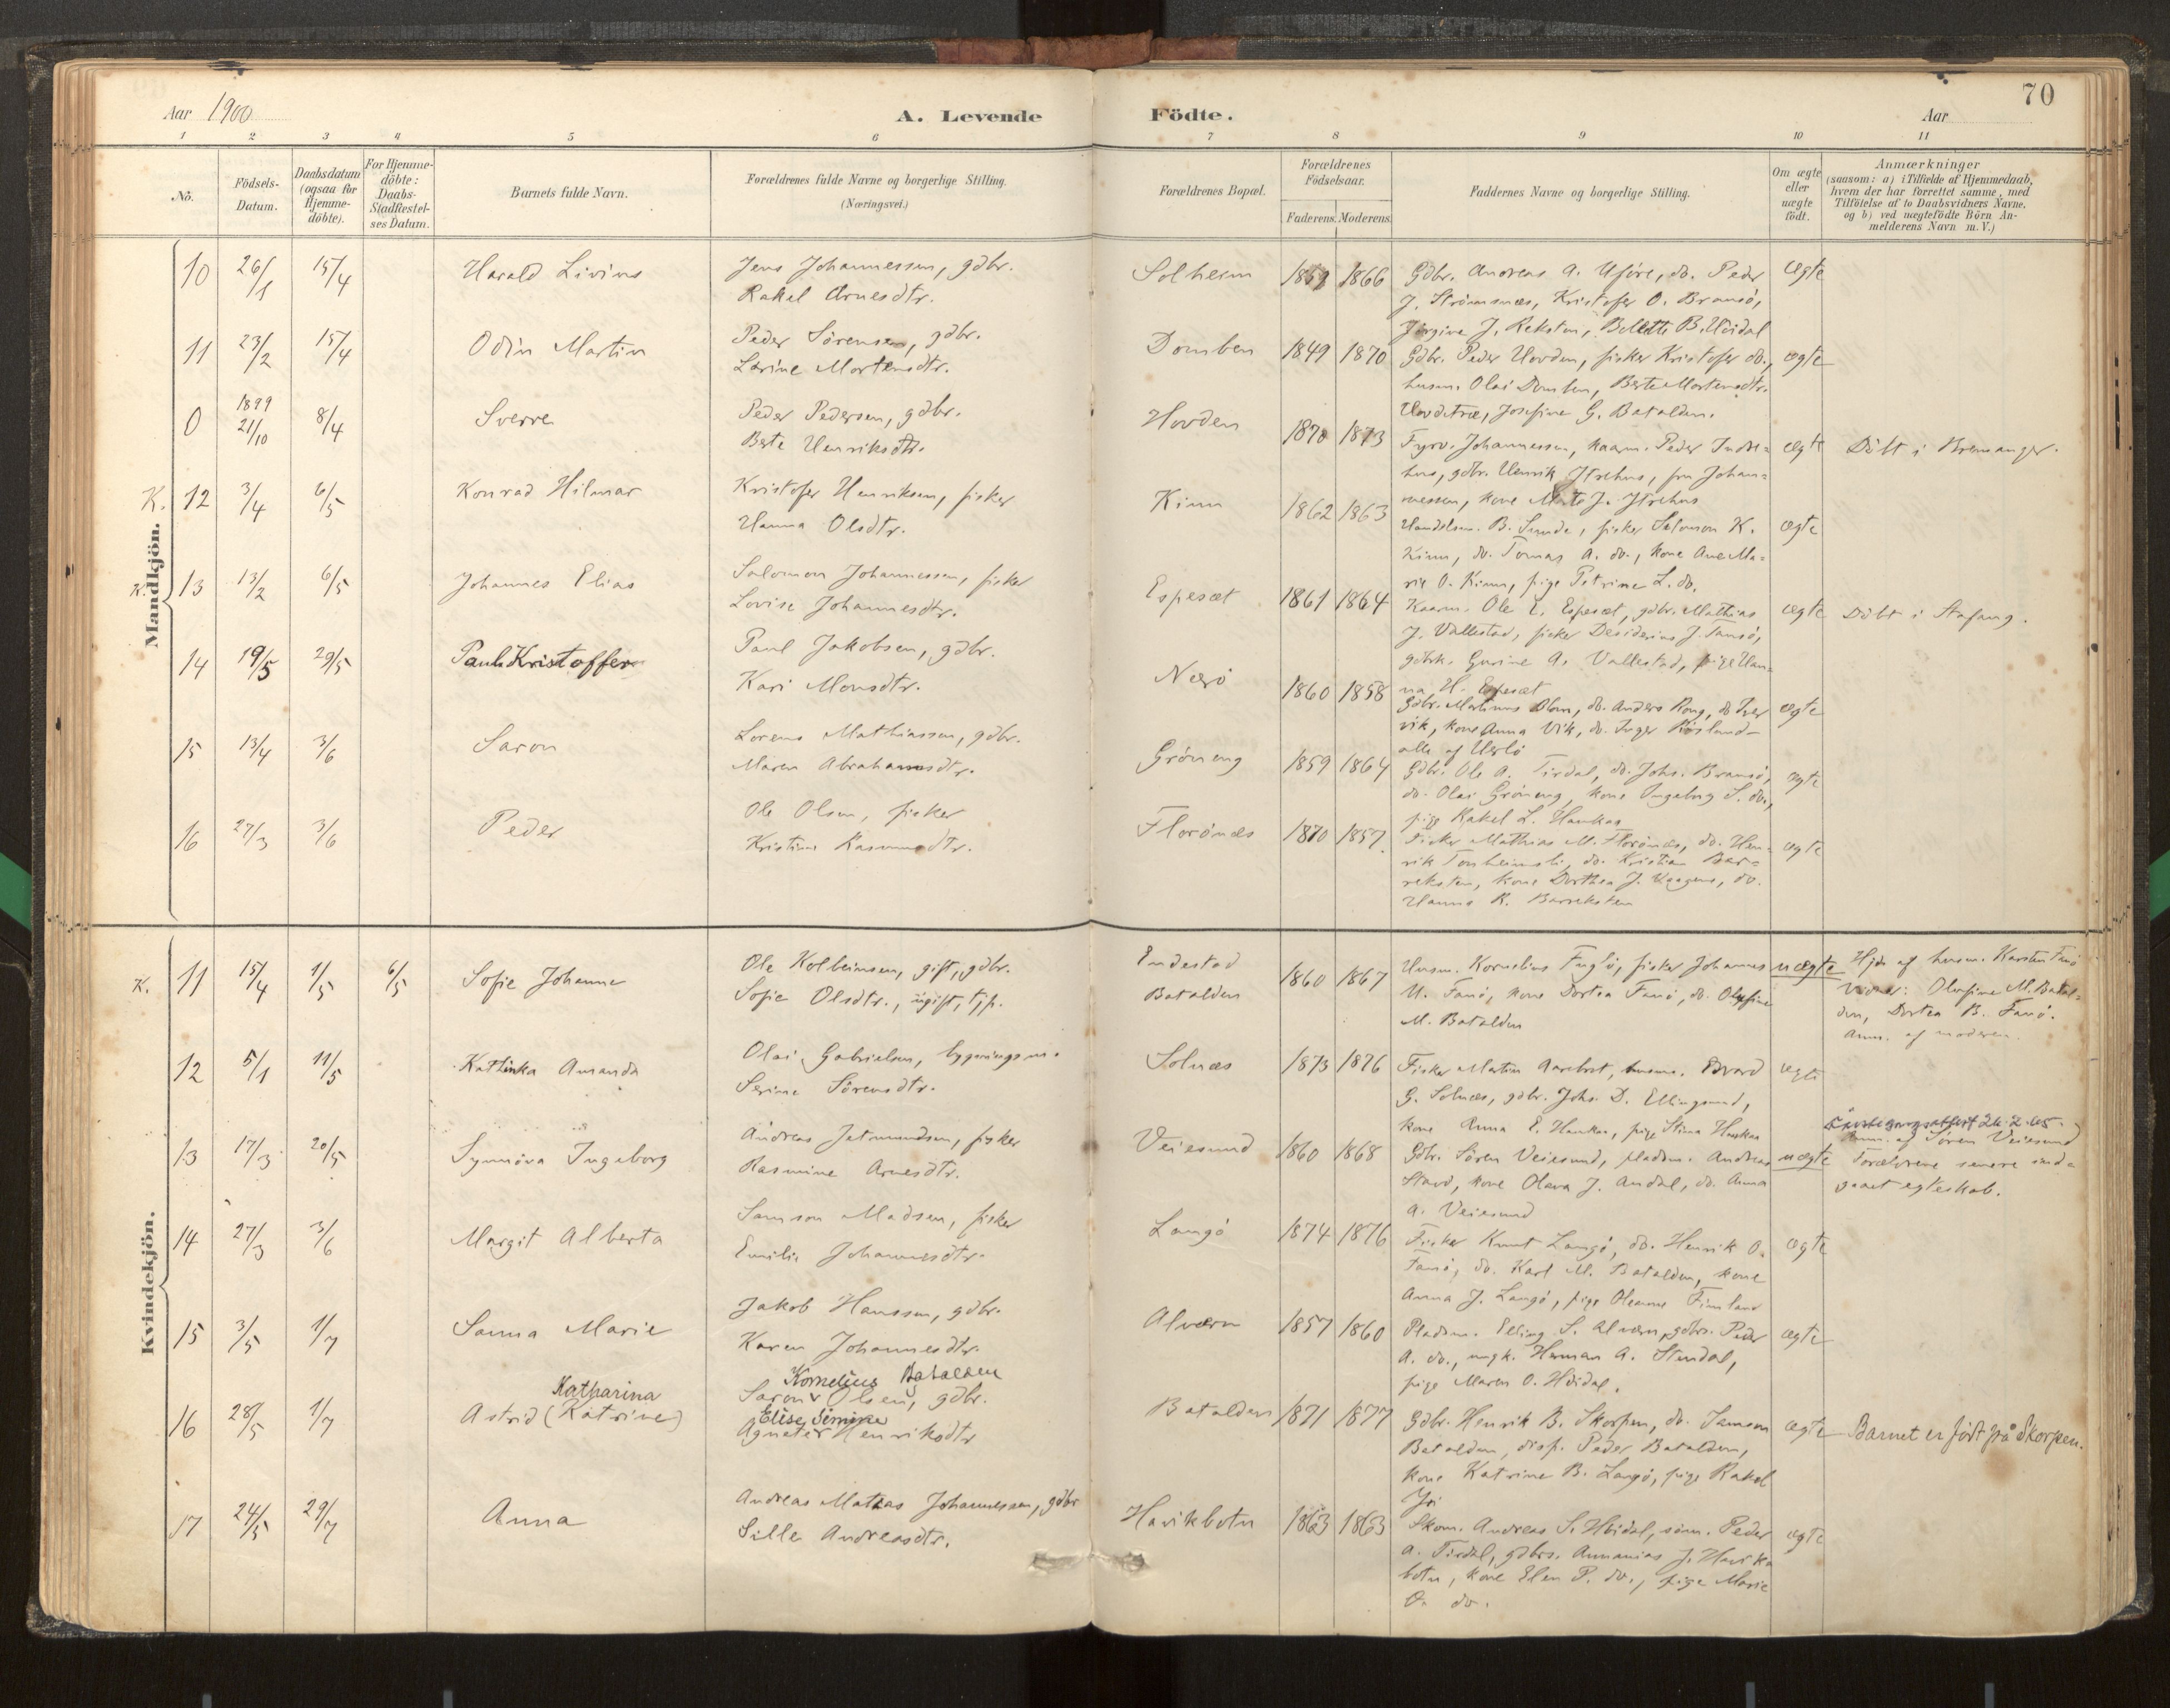 70
Aar 1900
A. Levende Födte.
Aar
1 2 3 4 5 6 7 8 9 10 11
No.
Födsels-Datum.
Daabsdatum (ogsaa for Hjemme-döbte).
For Hjemme-döbte: Daabs-Stadfæstel-ses Datum.
Barnets fulde Navn.
Forældrenes fulde Navne og borgerlige Stilling.
(Næringsvei.)
Forældrenes Bopæl.
Forældrenes Födselsaar.
Faderens. Moderens.
Faddernes Navne og borgerlige Stilling.
Om ægte eller uægte født.
Anmærkninger
(saasom: a) i Tilfælde af Hjemmedaab,
hvem der har forrettet samme, med
Tilföielse af to Daabsvidners Navne,
og b) ved uægtefödte Börn An-
melderens Navn m. V.)
Mandkjön.
10 26/1 15/4 Harald Livins Jens Johannessen, gdbr. Solheim 1859 1866 Gdbr. Andreas A. Uföre, do. Peder ægte
Rakel Arnesdtr. J. Strömsnæs, Kristofer O. Bransö,
Jörgine J. Reksten, B. Hvidal
11 23/2 15/4 Odin Martin Peder Sörensen, gdbr. Domben 1849 1870 Gdbr. Peder Hovden, fisker Kristofer do., ægte
Larine Mortensdtr. husm. Olai Domben, Berte Mortensdtr.
Josefine G. Batalden.
0 1899 21/10 8/4 Sverre Peder Pedersen, gdbr. Hovden 1870 1873 Fyrv. Johannessen, kaarm. Peder Indre- ægte Döbt i Bremanger.
Berte Henriksdtr. hus, gdbr. Henrik Ytrehus, fru Johan-
nessen, kone J. Ytrehus
K. 12 3/4 6/5 Konrad Hilmar Kristofer Henriksen, fisker Kinn 1862 1863 Handelsm. B. Sunde, fisker Salomon K. ægte
Hanna Olsdtr. Kinn, do. Tomas A. do., kone Ane Ma-
rie O. Kinn, pige Petrine L. do.
K. 13 13/2 6/5 Johannes Elias Salomon Johannessen, fisker Espesæt 1861 1864 Kaarm. Ole E. Espesæt, gdbr. Mathias ægte Döbt i Stafang.
Lovise Johannesdtr. J. Vallestad, fisker Desiderius J. Tansö,
gdbrk. Gurine A. Vallestad, pige Han-
na H. Espesæt
14 19/5 29/5 Paul Kristoffer Paul Jakobsen, gdbr. Nærö 1860 1858 Gdbr. Martinus Blom, do. Anders Rong, do Iver ægte
Kari Monsdtr. vik, kone Anna Vik, do. Inger Rösland-
alle af Herlö
15 13/4 3/6 Saron Lorens Mathiassen, gdbr. Gröneng 1859 1864 Gdbr. Ole A. Tirdal, do. Johs. Bransö, ægte
Maren Abrahamsdtr. do. Olai Gröneng, kone Ingeborg S. do.,
pige Rakel L. Haukaa
16 27/3 3/6 Peder Ole Olsen, fisker Florönæs 1870 1857 Fisker Mathias M. Florönæs, do. Hen- ægte
Kristine Rasmusdtr. rik Tonheimsli, do. Kristian Bar-
reksten, kone Dorthea J. do.
Hanna R. Barreksten
Kvindekjön.
K. 11 15/4 1/5 6/5 Sofie Johanne Ole Kolbeinsen, gift, gdbr. Endestad 1860 1867 Husm. Kornelius Fuglö, fisker Johannes uægte Hjd. af husm. Karsten Fanö
Sofie Olsdtr., ugift, tjp. Batalden H. Fanö, kone Dortea Fanö, do. Olufine Vidner: Olufine M. Batal-
M. Batalden den, Dortea B. Fanö.
Anm. af moderen.
12 5/1 11/5 Kathinka Amanda Olai Gabrielsen, bygningsm. Solnæs 1873 1876 Fisker Martin Aarebrot, husm. Edvard ægte
Serine Sörensdtr. G. Solnæs, gdbr. Johs. D. Ellingsund,
kone Anna E. Haukaa, pige Stina Haukaa
13 17/3 20/5 Synnöva Ingeborg Andreas Jetmundsen, fisker Veiesund 1860 1868 Gdbr. Sören Veiesund, pladsm. Andreas uægte Anm. af Sören Veiesund
Rasmine Arnesdtr. Stavd, kone Olava J. Andal, do. Anna Forældrene senere ind-
A. Veiesund gaaet egteskab.
14 27/3 3/6 Margit Alberta Samson Madsen, fisker Langö 1874 1876 Fisker Knut Langö, do. Henrik O. ægte
Emilie Johannesdtr. Fanö, do. Karl M. Batalden, kone
Anna J. Langö, pige Oleanne Fimland
15 3/5 1/7 Sanna Marie Jakob Hanssen, gdbr. Alværn 1857 1860 Pladsm. Elling S. Alværn, gdbrs. Peder ægte
Karen Johannesdtr. A. do., ungk. Herman A. Stendal,
pige Maren O. Hvidal.
Katharina Kornelius Batalden
16 28/5 1/7 Astrid (Katrine) Saron Olsen, gdbr. Batalden 1871 1877 Gdbr. Henrik B. Skorpen, do. Samson ægte Barnet er født på Skorpen.
Elise Simine
Agnete Henriksdtr Batalden, disp. Peder Batalden,
kone Katrine B. Langö, pige Rakel
Yri
17 24/5 29/7 Anna Andreas Mathias Johannessen, gdbr Havikbotn 1863 1863 Skom. Andreas S. Hvidal, söm. Peder ægte
Sille Andreasdtr. A. Tirdal, gdbrs. Annanias J. Havik-
botn, kone Elen P. do., pige Marie
O. do.